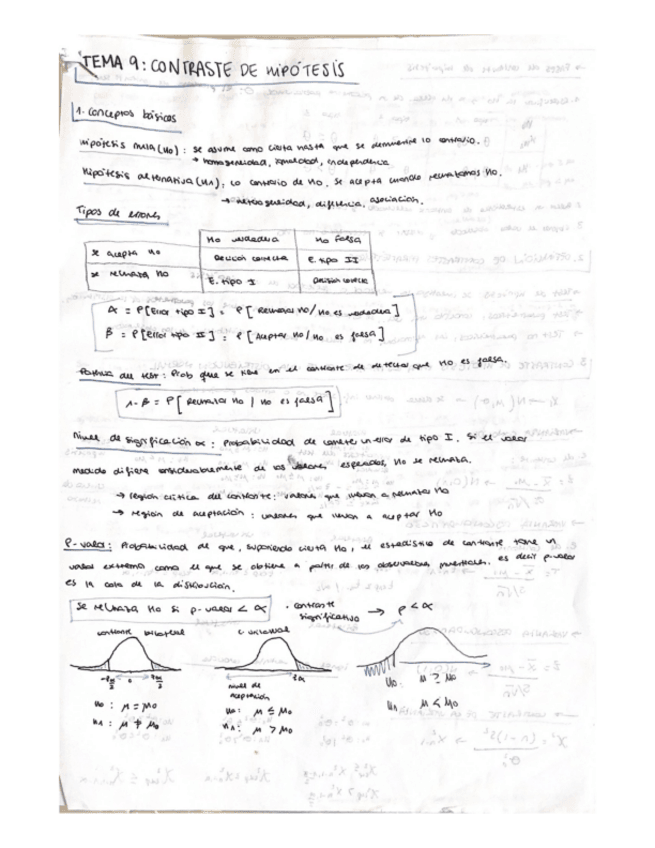 TEMA 9: CONTRASTE DE HIPÓTESIS
1. Conceptos básicos
Hipótesis nula (H0): se asume como cierta hasta que se demuestre lo contrario.
→ homogeneidad, igualdad, independencia
Hipótesis alternativa (H1): lo contrario de H0. Se acepta cuando rechazamos H0.
→ heterogeneidad, diferencia, asociación.
Tipos de errores
H0 verdadera H0 falsa
Se acepta H0 Decisión correcta E. tipo II
Se rechaza H0 E. tipo I Decisión correcta
α = P[Error tipo I] = P[Rechazar H0/H0 es verdadera]
β = P[Error tipo II] = P[Aceptar H0/H0 es falsa]
Potencia del test: Prob que se tiene en el contraste de detectar que H0 es falsa.
1-β = P[Rechazar H0 / H0 es falsa]
Nivel de significación α: Probabilidad de cometer un error de tipo I. Si el valor
medido difiere considerablemente de los valores esperados, H0 se rechaza.
→ región crítica del contraste: valores que llevan a rechazar H0
→ región de aceptación: valores que llevan a aceptar H0
P-valor: Probabilidad de que, suponiendo cierta H0, el estadístico de contraste tome un
valor extremo como el que se obtiene a partir de las observaciones muestrales. es decir p-valor
es la cola de la distribución.
Se rechaza H0 si p-valor < α · contraste significativo → p < α
contraste bilateral c. unilateral
-zα/2 0 zα/2 zα
nivel de aceptación
H0: μ = μ0 H0: μ ≤ μ0 H0: μ ≥ μ0
H1: μ ≠ μ0 H1: μ > μ0 H1 μ < μ0